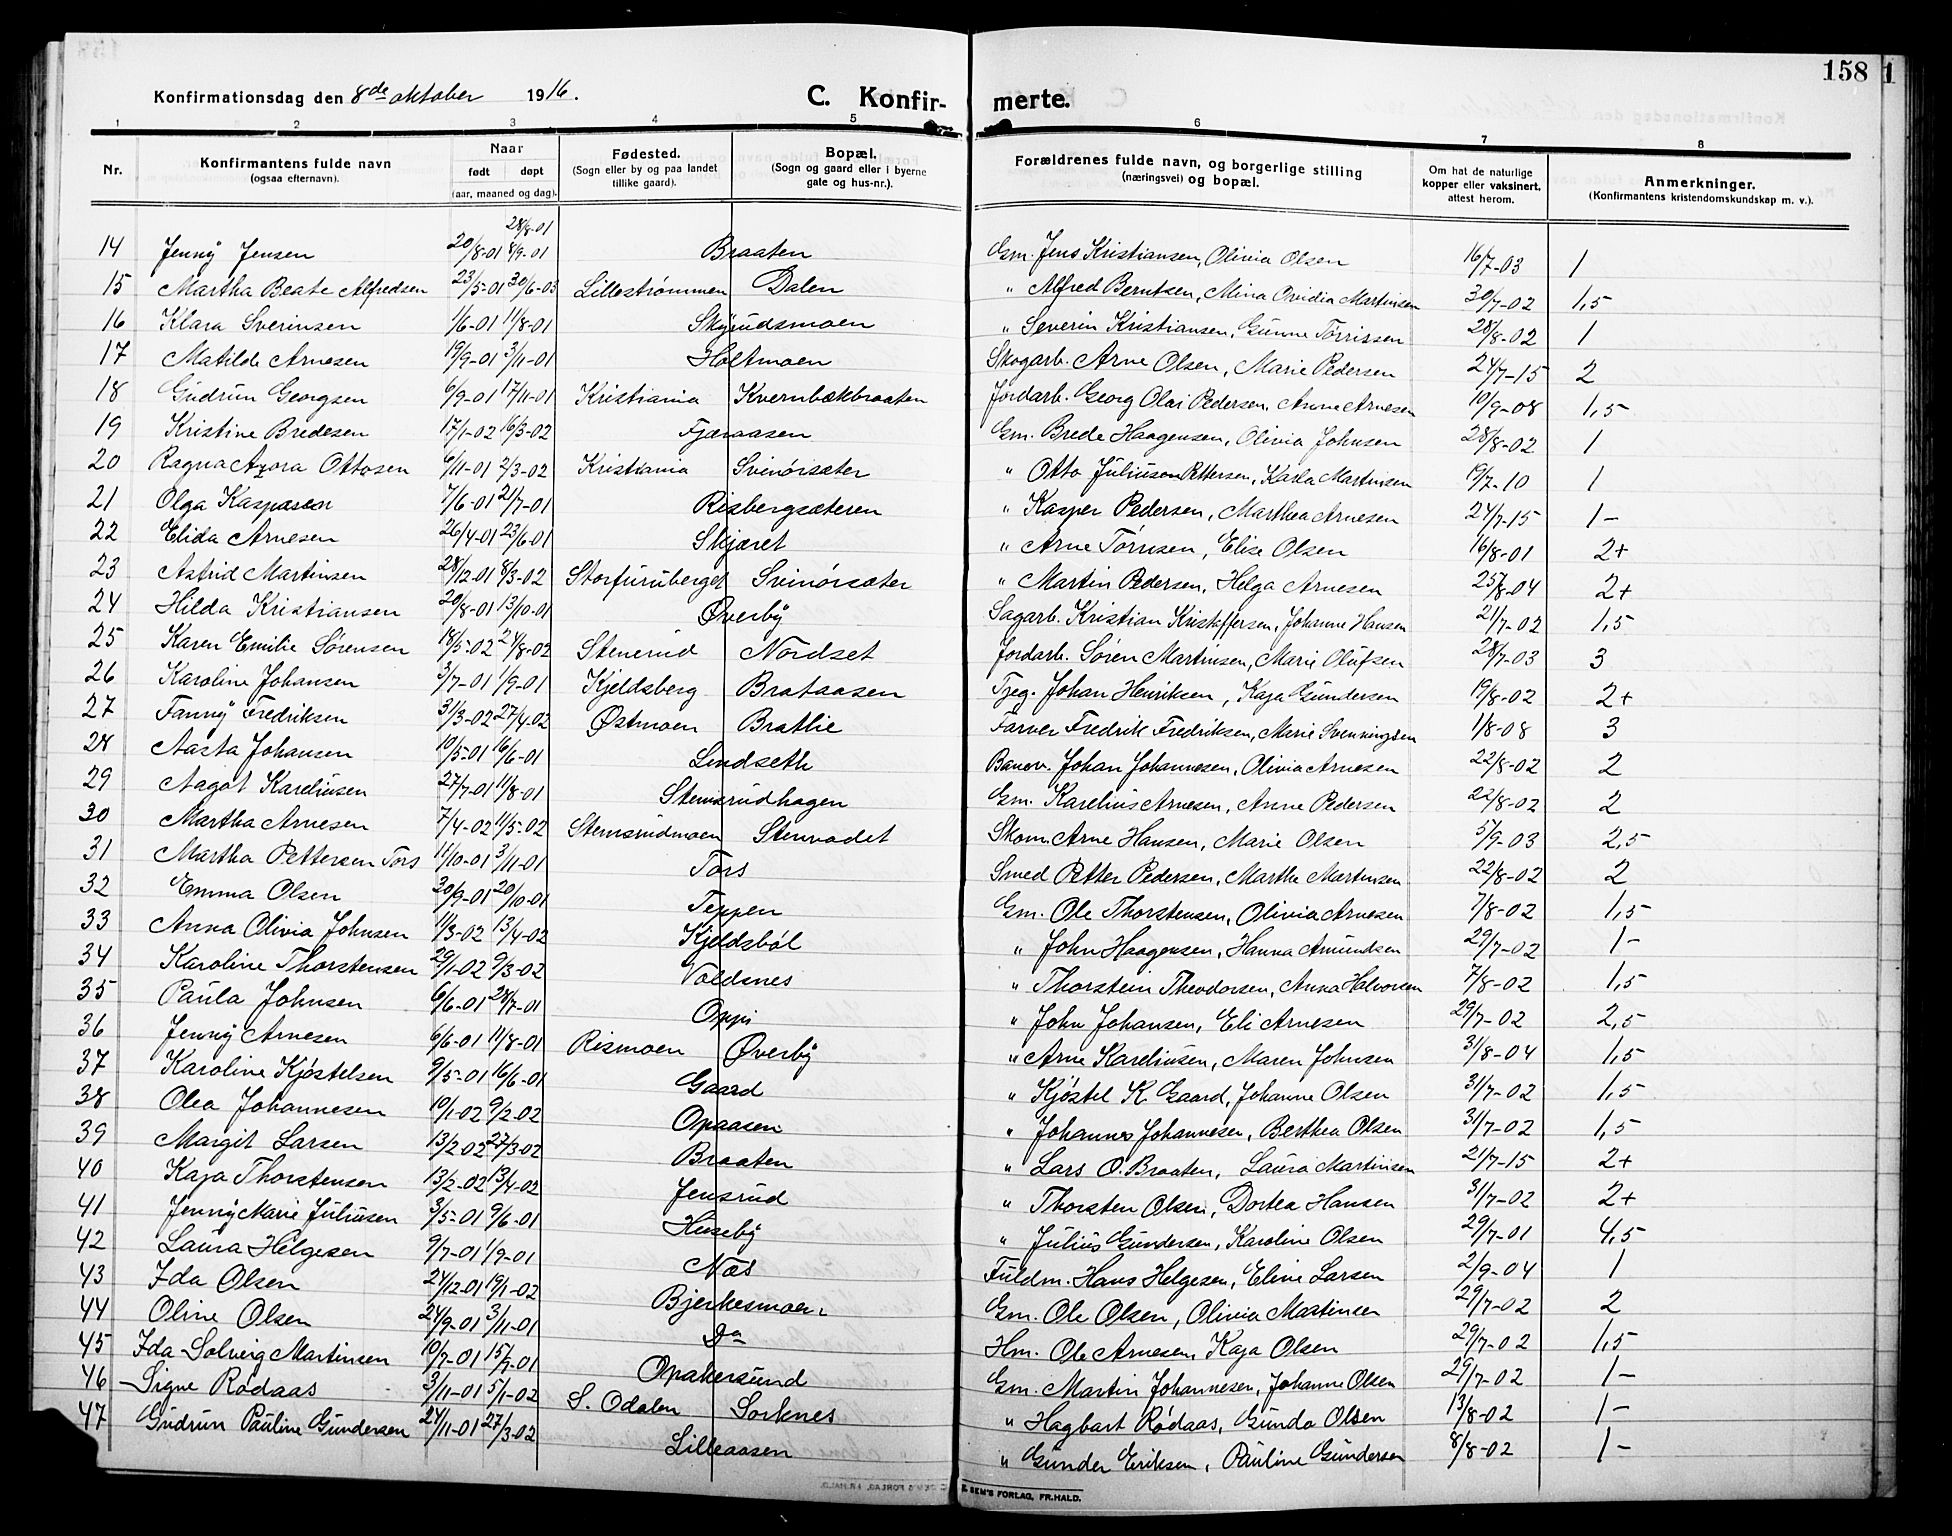 158 1
Konfirmationsdag den 8de oktober 1916. C. Konfir- merte.
1 2 3 4 5 6 7 8
Nr. Konfirmantens fulde navn (ogsaa efternavn). Naar født døpt (aar, maaned og dag). Fødested. (Sogn eller by og paa landet tillike gaard). Bopæl. (Sogn og gaard eller i byerne gate og hus-nr.). Forældrenes fulde navn, og borgerlige stilling (næringsvei) og bopæl. Om hat de naturlige kopper eller vaksinert, attest herom. Anmerkninger. (Konfirmantens kristendomskundskap m. v.).
28/8-01
14 Jenny Jensen 20/8-01 8/9-01 Braaten Gm. Jens Kristiansen, Olivia Olsen 16/7-03 1
15 Martha Beate Alfredsen 23/5-01 30/6-03 Lillestrømmen Dalen " Alfred Berntsen, Mina Ovidia Martinsen 30/7-02 1,5
16 Klara Sverinsen 1/6-01 11/8-01 Skyrudsmoen " Severin Kristiansen, Gunne Tørrissen 28/8-02 1
17 Matilde Arnesen 19/9-01 3/11-01 Holtmoen Skogarb. Arne Olsen, Marie Pedersen 24/7-15 2
18 Gudrun Georgsen 6/9-01 17/11-01 Kristiania Kvernbækbraaten Jordarb. Georg Olai Pedersen, Anne Arnesen 10/9-08 1,5
19 Kristine Bredesen 17/1-02 16/3-02 Fjæraasen Gm. Brede Haagensen, Olivia Johnsen 28/8-02 1
20 Ragna Azora Ottosen 6/11-01 2/3-02 Kristiania Svinørsæter " Otto Juliussen Pettersen, Karla Martinsen 19/7-10 1
21 Olga Kaspersen 7/6-01 21/7-01 Risbergsæteren " Kasper Pedersen, Marthea Arnesen 24/7-15 1-
22 Elida Arnesen 26/4-01 23/6-01 Skjæret " Arne Tørrisen, Elise Olsen 16/8-01 2+
23 Astrid Martinsen 28/12-01 8/3-02 Storfuruberget Svinørsæter " Martin Pedersen, Helga Arnesen 25/8-04 2+
24 Hilda Kristiansen 20/8-01 13/10-01 Øverby Sagarb. Kristian Kristoffersen, Johanne Hansen 21/7-02 1,5
25 Karen Emilie Sørensen 18/5-02 24/8-02 Stenerud Nordset Jordarb. Søren Martinsen, Marie Olufsen 28/7-03 3
26 Karoline Johansen 3/7-01 1/9-01 Kjeldsberg Brataasen Tjeg. Johan Henriksen, Kaja Gundersen 19/8-02 2+
27 Fanny Fredriksen 31/3-02 27/4-02 Østmoen Bratlie Farver Fredrik Fredriksen, Marie Svenningsen 1/8-08 3
28 Aasta Johansen 10/5-01 16/6-01 Lindseth Banev. Johan Johannesen, Olivia Arnesen 22/8-02 2
29 Aagot Kareliusen 27/7-01 11/8-01 Stemsrudhagen Gm. Karelius Arnesen, Anne Pedersen 22/8-02 2
30 Martha Arnesen 7/4-02 11/5-02 Stemsrudmoen Stenvadet Skom. Arne Hansen, Marie Olsen 5/9-03 2,5
31 Martha Pettersen Tørs 11/10-01 3/11-01 Tørs Smed Petter Pedersen, Marthe Martinsen 22/8-02 2
32 Emma Olsen 30/9-01 20/10-01 Teppen Gm. Ole Thorstensen, Olivia Arnesen 7/8-02 1,5
33 Anna Olivia Johnsen 11/3-02 13/4-02 Kjeldsbøl " John Haagensen, Hanna Amundsen 29/7-02 1-
34 Karoline Thorstensen 29/1-02 9/3-02 Voldsnes " Thorstein Theodorsen, Anna Halvorsen 7/8-02 1,5
35 Paula Johnsen 6/6-01 28/7-01 Oppi " John Johansen, Eli Arnesen 29/7-02 2,5
36 Jenny Arnesen 6/6-01 11/8-01 Rismoen Øverby " Arne Kareliusen, Maren Johnsen 31/8-04 1,5
37 Karoline Kjøstelsen 9/5-01 16/6-01 Gaard " Kjøstel K. Gaard, Johanne Olsen 31/7-02 1,5
38 Olea Johannesen 10/1-02 9/2-02 Opaasen " Johannes Johannesen, Berthea Olsen 31/7-02 1,5
39 Margit Larsen 13/2 02 27/3-02 Braaten " Lars O. Braaten, Laura Martinsen 21/7-15 2+
40 Kaja Thorstensen 13/2-02 13/4-02 Jensrud " Thorsten Olsen, Dortea Hansen 31/7-02 2+
41 Jenny Marie Juliusen 3/5-01 9/6-01 Huseby " Julius Gundersen, Karoline Olsen 29/7-01 4,5
42 Laura Helgesen 9/7-01 1/9-01 Næs Fuldm. Hans Helgesen, Eline Larsen 2/9-04 1
43 Ida Olsen 24/12-01 19/1-02 Bjerkesmoen Gm. Ole Olsen, Olivia Martinsen 29/7-02 2
44 Oline Olsen 24/9-01 3/11-01 Do Hm. Ole Arnesen, Kaja Olsen 29/7-02 1,5
45 Ida Solveig Martinsen 10/7-01 15/7-01 Opakersund Gm. Martin Johannesen, Johanne Olsen 29/7-02 1-
46 Signe Rødaas 3/11-01 5/1-02 S. Odalen Sorknes " Hagbart Rødaas, Gunda Olsen 13/8-02 1-
47 Gudrun Pauline Gundersen 24/11-01 27/3-02 Lilleaasen " Gunder Eriksen, Pauline Gundersen 8/8-02 1-
SEM'S FORLAG, FR.HALD.